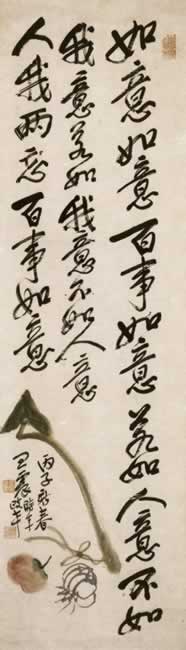 如意如意百事如意若如人意不如
我意若如我意不如人意
人我兩忘百事如意
丙子新春
王震時年七十